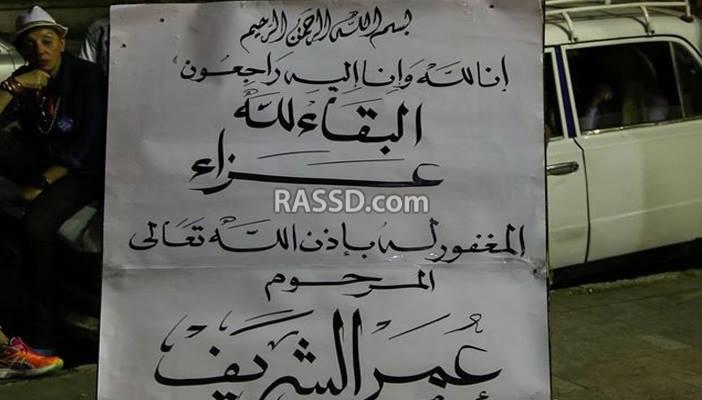 بسم الله الرحمن الرحيم
إنا لله وإنا إليه راجعون
البقاء لله
عزاء
RASSD.com
المغفور له بإذن الله تعالى
المرحوم
عمر الشريف